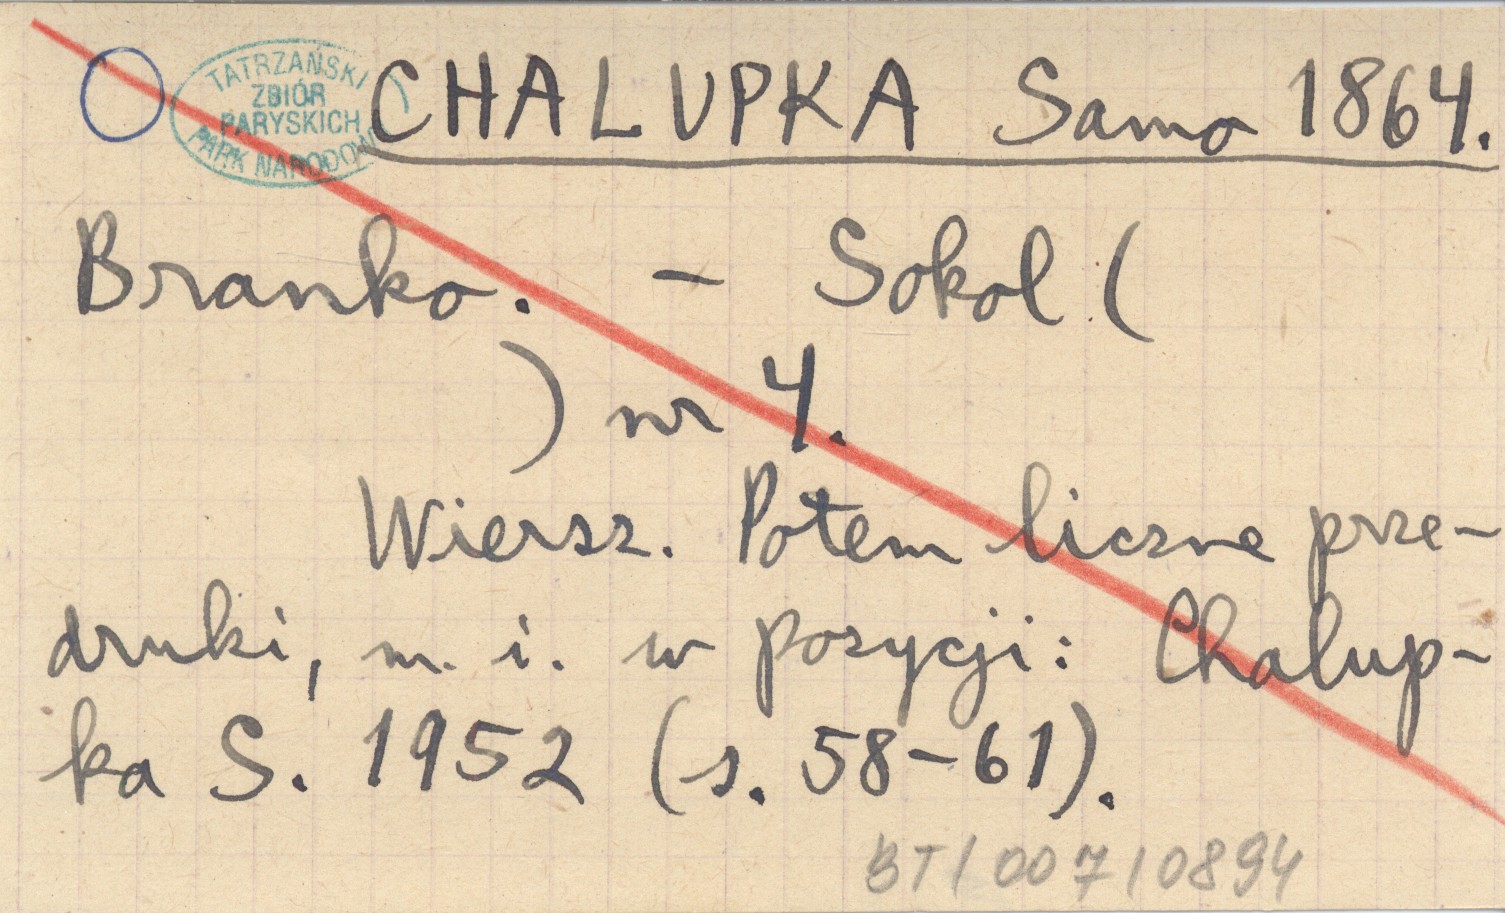 TATRZAŃSKI
ZBIÓR
PARYSKICH
PARK NARODOWY
CHALUPKA Samo 1864.
Branko. – Sokol (
) nr 4.
Wiersz. Potem liczne prze-
druki, m. i. w pozycji: Chalup-
ka S. 1952 (s. 58–61).
BT/007/0894